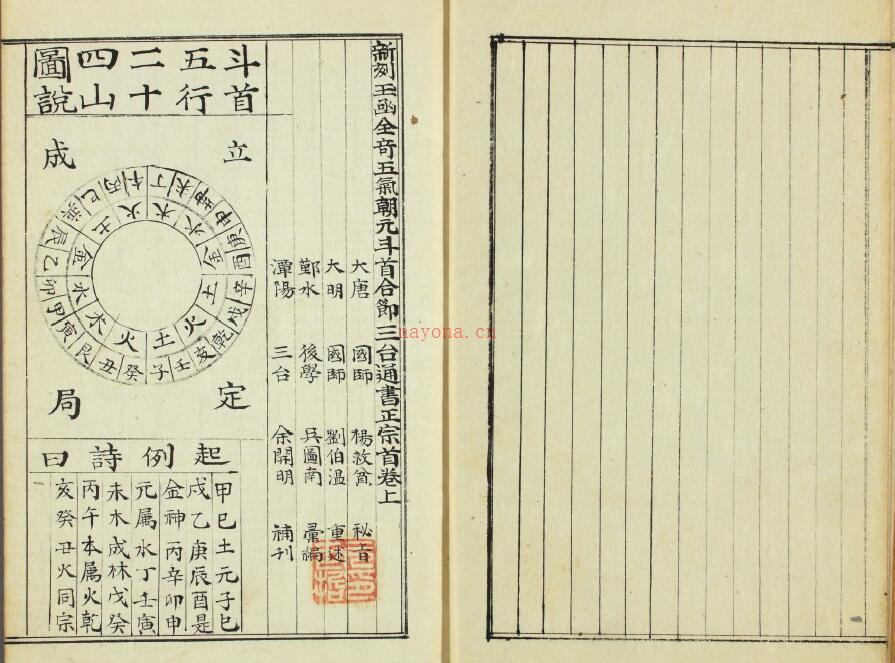 新刻玉函全奇五氣朝元斗首合節三台通書正宗首卷上
大唐 國師 楊救貧 秘旨
大明 國師 劉伯溫 重述
鄞水 後學 吳圖南 彙編
潭陽 三台 余開明 補刊
斗首五行二十四山圖說
立成定局
子壬亥乾戌辛酉庚申坤未丁午丙巳巽辰乙卯甲寅艮丑癸
土火土金水木火土金水木火
起例詩曰
甲巳土元子巳
戌乙庚辰酉是
金神丙辛卯申
元属水丁壬寅
未木成林戊癸
丙午本属火乾
亥癸丑火同宗
nayona.cn